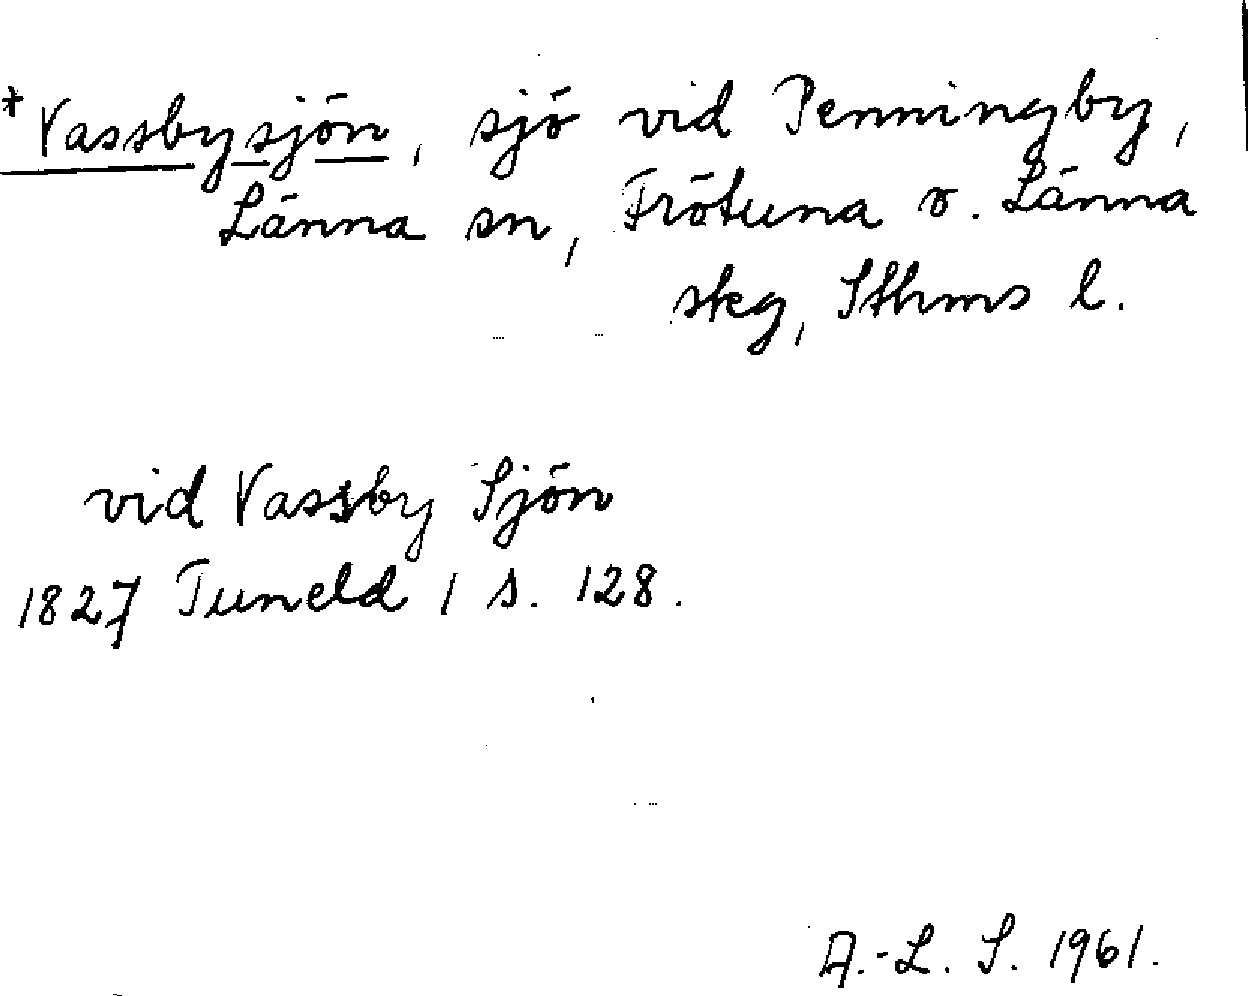 * Vassbysjön, sjö vid Penningby,
Länna sn, Frötuna o. Länna
skg, Sthms l.
vid Vassby Sjön
1827 Tuneld 1 s. 128.
A.-L. S. 1961.